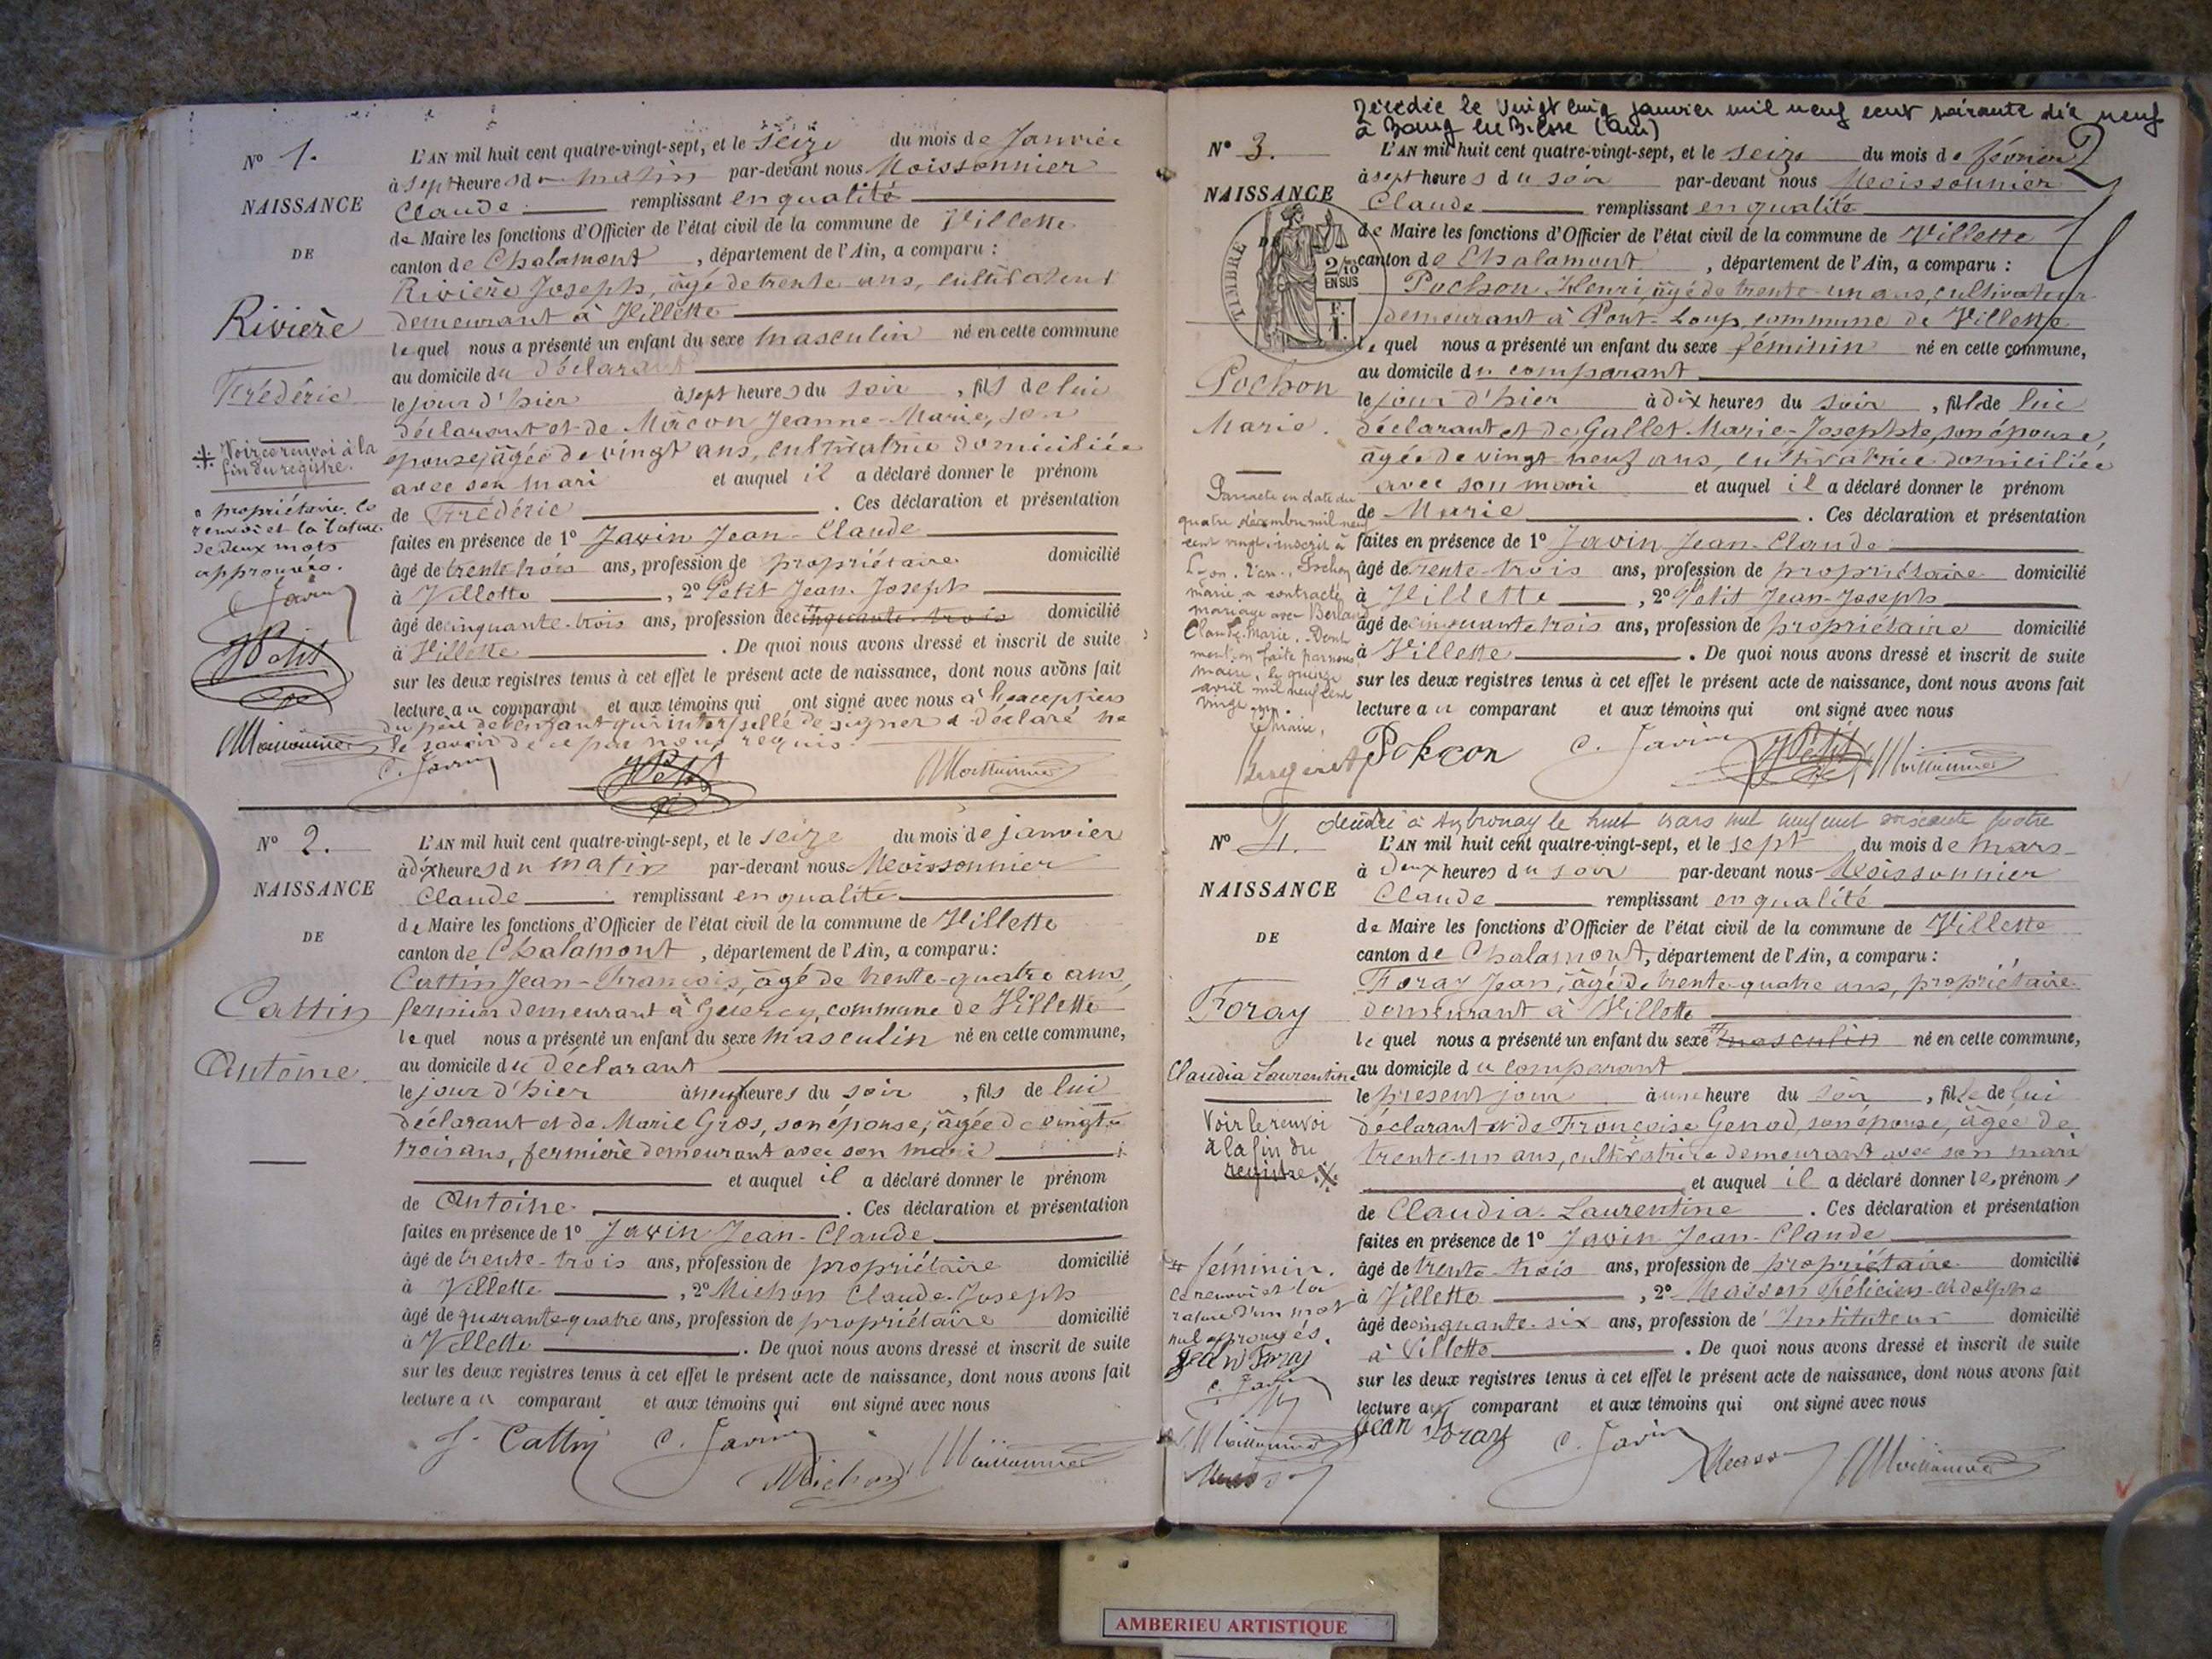 N° 1.
NAISSANCE
DE
Rivière
Frédéric
Voir ce renvoi à la
fin du registre.
propriétaire ce
renvoi et la rature
de deux mots
approuvés.
C. Javin
JPetit
Moissonnier
L'AN mil huit cent quatre-vingt-sept, et le seize du mois de Janvier
à sept heures du matin par-devant nous Moissonnier
Claude remplissant en qualité
de Maire les fonctions d'Officier de l'état civil de la commune de Villette
canton de Chalamont, département de l'Ain, a comparu :
Rivière Joseph, âgé de trente ans, cultivateur
demeurant à Villette
lequel nous a présenté un enfant du sexe masculin né en cette commune
au domicile du déclarant
le jour d'hier à sept heures du soir, fils de lui
déclarant et de Jeanne-Marie, son
épouse, âgée de vingt ans, cultivatrice domiciliée
avec son mari et auquel il a déclaré donner le prénom
de Frédéric. Ces déclaration et présentation
faites en présence de 1° Javin Jean-Claude
âgé de trente-trois ans, profession de propriétaire domicilié
à Villette, 2° Petit Jean-Joseph
âgé de cinquante-trois ans, profession de cinquante-trois domicilié
à Villette. De quoi nous avons dressé et inscrit de suite
sur les deux registres tenus à cet effet le présent acte de naissance, dont nous avons fait
lecture au comparant et aux témoins qui ont signé avec nous à l'exception
du père de l'enfant qui interpellé de signer a déclaré ne
le savoir de ce par nous requis.
C. Javin JPetit Moissonnier
N° 2.
NAISSANCE
DE
Cattin
Antoine.
L'AN mil huit cent quatre-vingt-sept, et le seize du mois de janvier
à dix heures du matin par-devant nous Moissonnier
Claude remplissant en qualité
de Maire les fonctions d'Officier de l'état civil de la commune de Villette
canton de Chalamont, département de l'Ain, a comparu :
Cattin Jean-François, âgé de trente-quatre ans,
fermier demeurant à Guercy, commune de Villette
lequel nous a présenté un enfant du sexe masculin né en cette commune,
au domicile du déclarant
le jour d'hier à neuf heures du soir, fils de lui
déclarant et de Marie Gros, son épouse, âgée de vingt-
trois ans, fermière demeurant avec son mari
et auquel il a déclaré donner le prénom
de Antoine. Ces déclaration et présentation
faites en présence de 1° Javin Jean-Claude
âgé de trente-trois ans, profession de propriétaire domicilié
à Villette, 2° Michon Claude-Joseph
âgé de quarante-quatre ans, profession de propriétaire domicilié
à Villette. De quoi nous avons dressé et inscrit de suite
sur les deux registres tenus à cet effet le présent acte de naissance, dont nous avons fait
lecture au comparant et aux témoins qui ont signé avec nous
J. Cattin C. Javin Michon Moissonnier
Décédée le vingt cinq janvier mil neuf cent soixante dix neuf
à Bourg en Bresse (Ain)
2
N° 3.
NAISSANCE
DE
TIMBRE
2/10
EN SUS
F.
1.
Pochon
Marie.
Par acte en date du
quatre décembre mil neuf
cent vingt, inscrit à
Lyon, Pochon
marie a contracté
mariage avec
Claude-Marie. Dont
mention faite par nous
maire, le quinze
avril mil neuf cent
vingt-un.
Le maire,
L'AN mil huit cent quatre-vingt-sept, et le seize du mois de février
à sept heures du soir par-devant nous Moissonnier
Claude remplissant en qualité
de Maire les fonctions d'Officier de l'état civil de la commune de Villette
canton de Chalamont, département de l'Ain, a comparu :
Pochon Henri, âgé de trente-un ans, cultivateur
demeurant à Pont-Loup, commune de Villette
lequel nous a présenté un enfant du sexe féminin né en cette commune,
au domicile du comparant
le jour d'hier à dix heures du soir, fille de lui
déclarant et de Gallet Marie-Josephte, son épouse,
âgée de vingt neuf ans, cultivatrice domiciliée
avec son mari et auquel il a déclaré donner le prénom
de Marie. Ces déclaration et présentation
faites en présence de 1° Javin Jean-Claude
âgé de trente-trois ans, profession de propriétaire domicilié
à Villette, 2° Petit Jean-Joseph
âgé de cinquante trois ans, profession de propriétaire domicilié
à Villette. De quoi nous avons dressé et inscrit de suite
sur les deux registres tenus à cet effet le présent acte de naissance, dont nous avons fait
lecture au comparant et aux témoins qui ont signé avec nous
Pohcon C. Javin JPetit Moissonnier
décédée à Ambronay le huit mars mil neuf cent soixante quatre
N° 4.
NAISSANCE
DE
Foray
Claudia Laurentine
Voir le renvoi
à la fin du
registre
féminin.
ce renvoi et la
rature d'un mot
nul approuvés.
Jean Foray
C. Javin
Moissonnier
Masson
L'AN mil huit cent quatre-vingt-sept, et le sept du mois de mars
à deux heures du soir par-devant nous Moissonnier
Claude remplissant en qualité
de Maire les fonctions d'Officier de l'état civil de la commune de Villette
canton de Chalamont, département de l'Ain, a comparu :
Foray Jean, âgé de trente-quatre ans, propriétaire
demeurant à Villette
lequel nous a présenté un enfant du sexe masculin né en cette commune,
au domicile du comparant
le présent jour à une heure du soir, fille de lui
déclarant et de Françoise Genod, son épouse, âgée de
trente-un ans, cultivatrice demeurant avec son mari
et auquel il a déclaré donner les prénoms
de Claudia-Laurentine. Ces déclaration et présentation
faites en présence de 1° Javin Jean-Claude
âgé de trente-trois ans, profession de propriétaire domicilié
à Villette, 2° Masson Félicien-Adolphe
âgé de cinquante-six ans, profession de Instituteur domicilié
à Villette. De quoi nous avons dressé et inscrit de suite
sur les deux registres tenus à cet effet le présent acte de naissance, dont nous avons fait
lecture au comparant et aux témoins qui ont signé avec nous
Jean Foray C. Javin Masson Moissonnier
AMBERIEU ARTISTIQUE